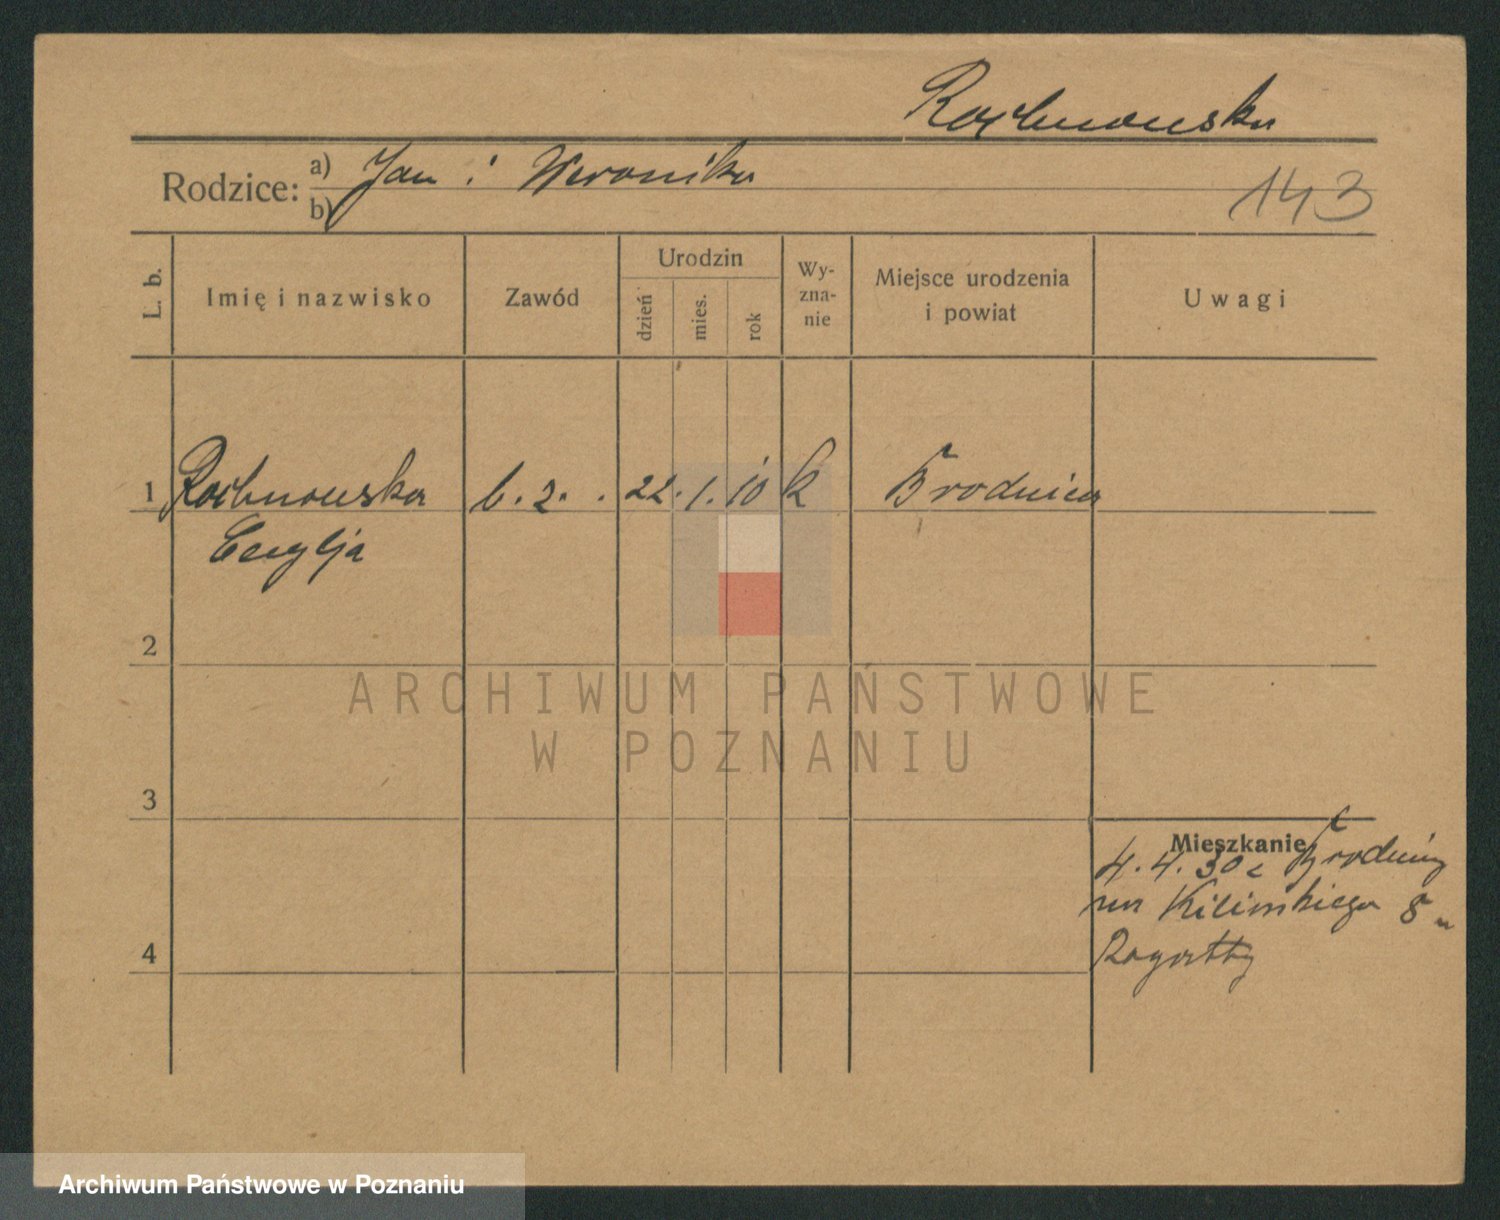 Rochnowska
Rodzice: a) Jan i Weronika
b)
143
L. b. Imię i nazwisko Zawód Urodzin dzień mies. rok Wy-zna-nie Miejsce urodzenia i powiat Uwagi
1 Rochnowska b. z. 22. 1. 10 k Brodnica
Cecylja
2
ARCHIWUM PAŃSTWOWE
W POZNANIU
3
Mieszkanie
4. 4. 30 z Brodnicy
na Kilińskiego 8 u
4
Archiwum Państwowe w Poznaniu